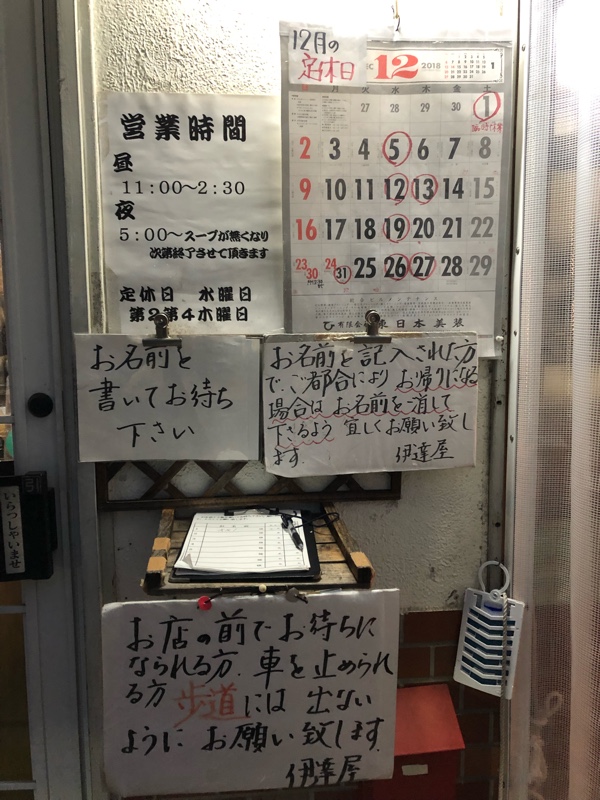 営業時間
昼
11:00〜2:30
夜
5:00〜スープが無くなり
次第終了させて頂きます
定休日 水曜日
第2第4木曜日
12月の
定休日
12
2018
1
月 火 水 木 金 土
27 28 29 30 1
2 3 4 5 6 7 8
9 10 11 12 13 14 15
16 17 18 19 20 21 22
23 30 24 31 25 26 27 28 29
有限会社 東日本美装
お名前を
書いてお待ち
下さい
お名前を記入された方
で、ご都合により お帰りになる
場合は お名前を消して
下さるよう 宜しくお願い致し
ます。 伊達屋
引
いらっしゃいませ
お店の前でお待ちに
なられる方、車を止められ
る方 歩道には 出ない
ように お願い致します
伊達屋